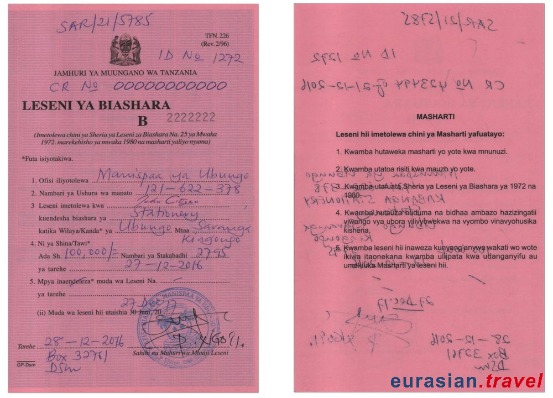 SAR/21/5785
TFN. 226
(Rev. 2/96)
ID No 1272
JAMHURI YA MUUNGANO WA TANZANIA
CR No 00000000000
LESENI YA BIASHARA
B 2222222
(Imetolewa chini ya Sheria ya Leseni za Biashara Na. 25 ya Mwaka
1972. marekebisho ya mwaka 1980 na masharti yaliyo nyuma)
*Futa isiyotakiwa.
1. Ofisi iliyotolewa Manispaa ya Ubungo
2. Nambari ya Ushuru wa mapato 121-622-378
3. Leseni imetolewa kwa
kuendesha biashara ya Stationery
katika Wilaya/Kanda* ya Ubungo Mtaa Saranga
Kingongo
4. Ni ya Shina/Tawi*
Ada Sh. 100,000/= Nambari ya Stakabadhi
ya tarehe 27-12-2016
5. Mpya inaendeleza* muda wa Leseni Na.
ya tarehe
27 Dec 17
(ii) Muda wa leseni hii utaishia 30 Juni, 20
Tarehe 28-12-2016
Box 32761
DSM
Sahihi na Muhuri wa Mtoaji Leseni
GP-Dsm
SAR/21/5785
ID No 1272
CR No 21-12-2016
MASHARTI
Leseni hii imetolewa chini ya Masharti yafuatayo:
1. Kwamba hutaweka masharti yo yote kwa mnunuzi.
2. Kwamba utatoa risiti kwa mauzo yo yote.
3. Kwamba utafuata Sheria ya Leseni ya Biashara ya 1972 na
1980.
4. Kwamba hutauza huduma na bidhaa ambazo hazizingatii
viwango vya ubora viliyowekwa na vyombo vinavyohusika
kisheria.
5. Kwamba leseni hii inaweza kunyang'anywa wakati wo wote
ikiwa itaonekana kwamba ulipata kwa ubanganyifu au
umevunja Masharti ya leseni hii.
27 Dec 17
28-12-2016
Box 32761
DSM
eurasian.travel